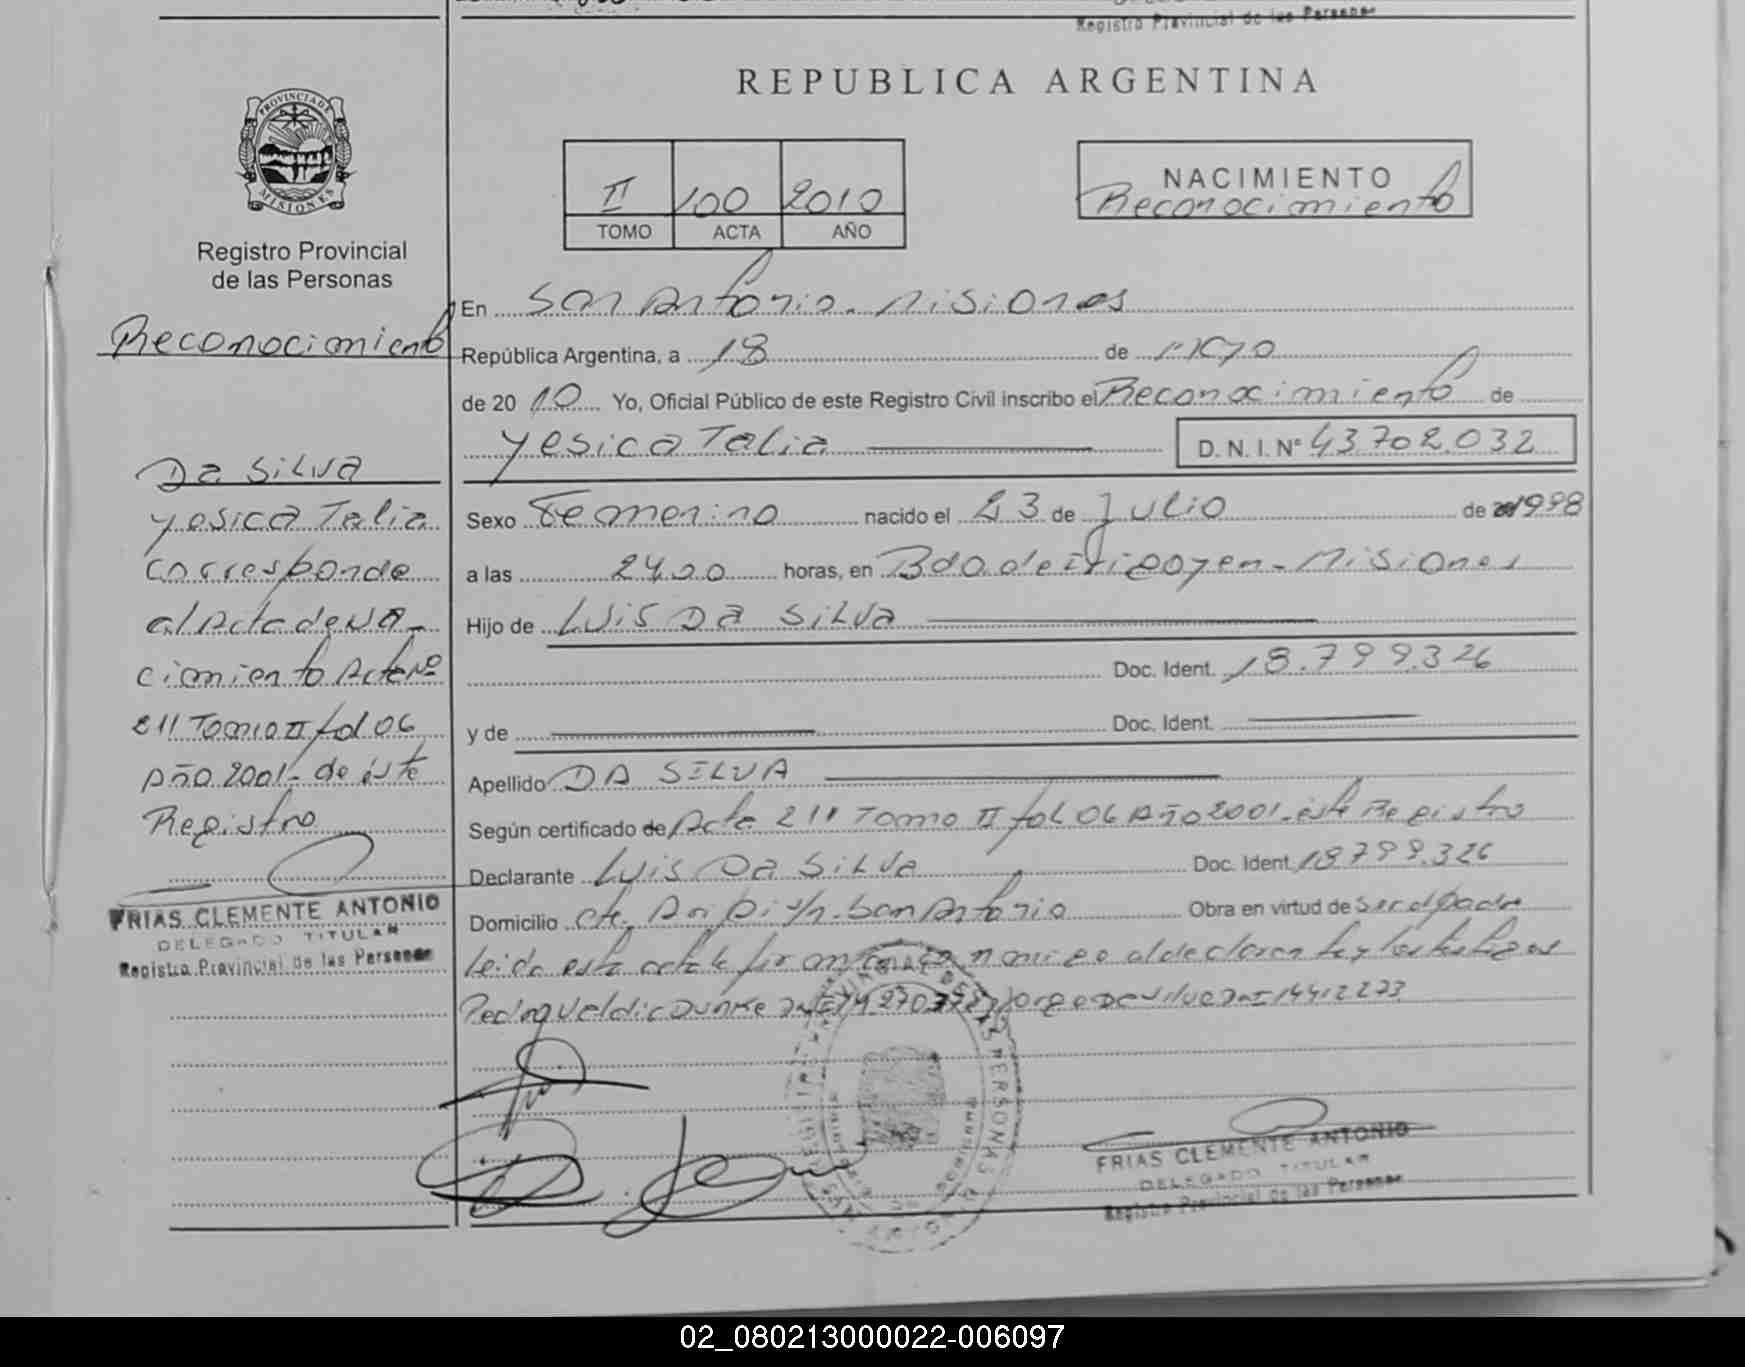 Registro Provincial de las Personas
REPUBLICA ARGENTINA
PROVINCIA DE
MISIONES
II 100 2010
TOMO ACTA AÑO
NACIMIENTO
Reconocimiento
Registro Provincial
de las Personas
Reconocimiento
Da Silva
Yesica Talia
Corresponde
al Acta de Na-
cimiento Acta Nº
211 Tomo II fol 06
Año 2001- de éste
Registro
FRIAS CLEMENTE ANTONIO
DELEGADO TITULAR
Registro Provincial de las Personas
En San Antonio - Misiones
República Argentina, a 18 de Mayo
de 2010 Yo, Oficial Público de este Registro Civil inscribo el Reconocimiento de
Yesica Talia D. N. I. Nº 43.702.032
Sexo Femenino nacido el 23 de Julio de 1998
a las 24.00 horas, en Bdo de Irigoyen - Misiones
Hijo de Luis Da Silva
Doc. Ident. 18.799.326
y de Doc. Ident.
Apellido DA SILVA
Según certificado de Acta 211 Tomo II fol 06 Año 2001- éste Registro
Declarante Luis Da Silva Doc. Ident. 18.799.326
Domicilio San Antonio Obra en virtud de Ser el padre
Leida esta acta la firman conmigo el declarante y los testigos
Jorge Da Silva DNI 14412273
FRIAS CLEMENTE ANTONIO
DELEGADO TITULAR
Registro Provincial de las Personas
02_080213000022-006097